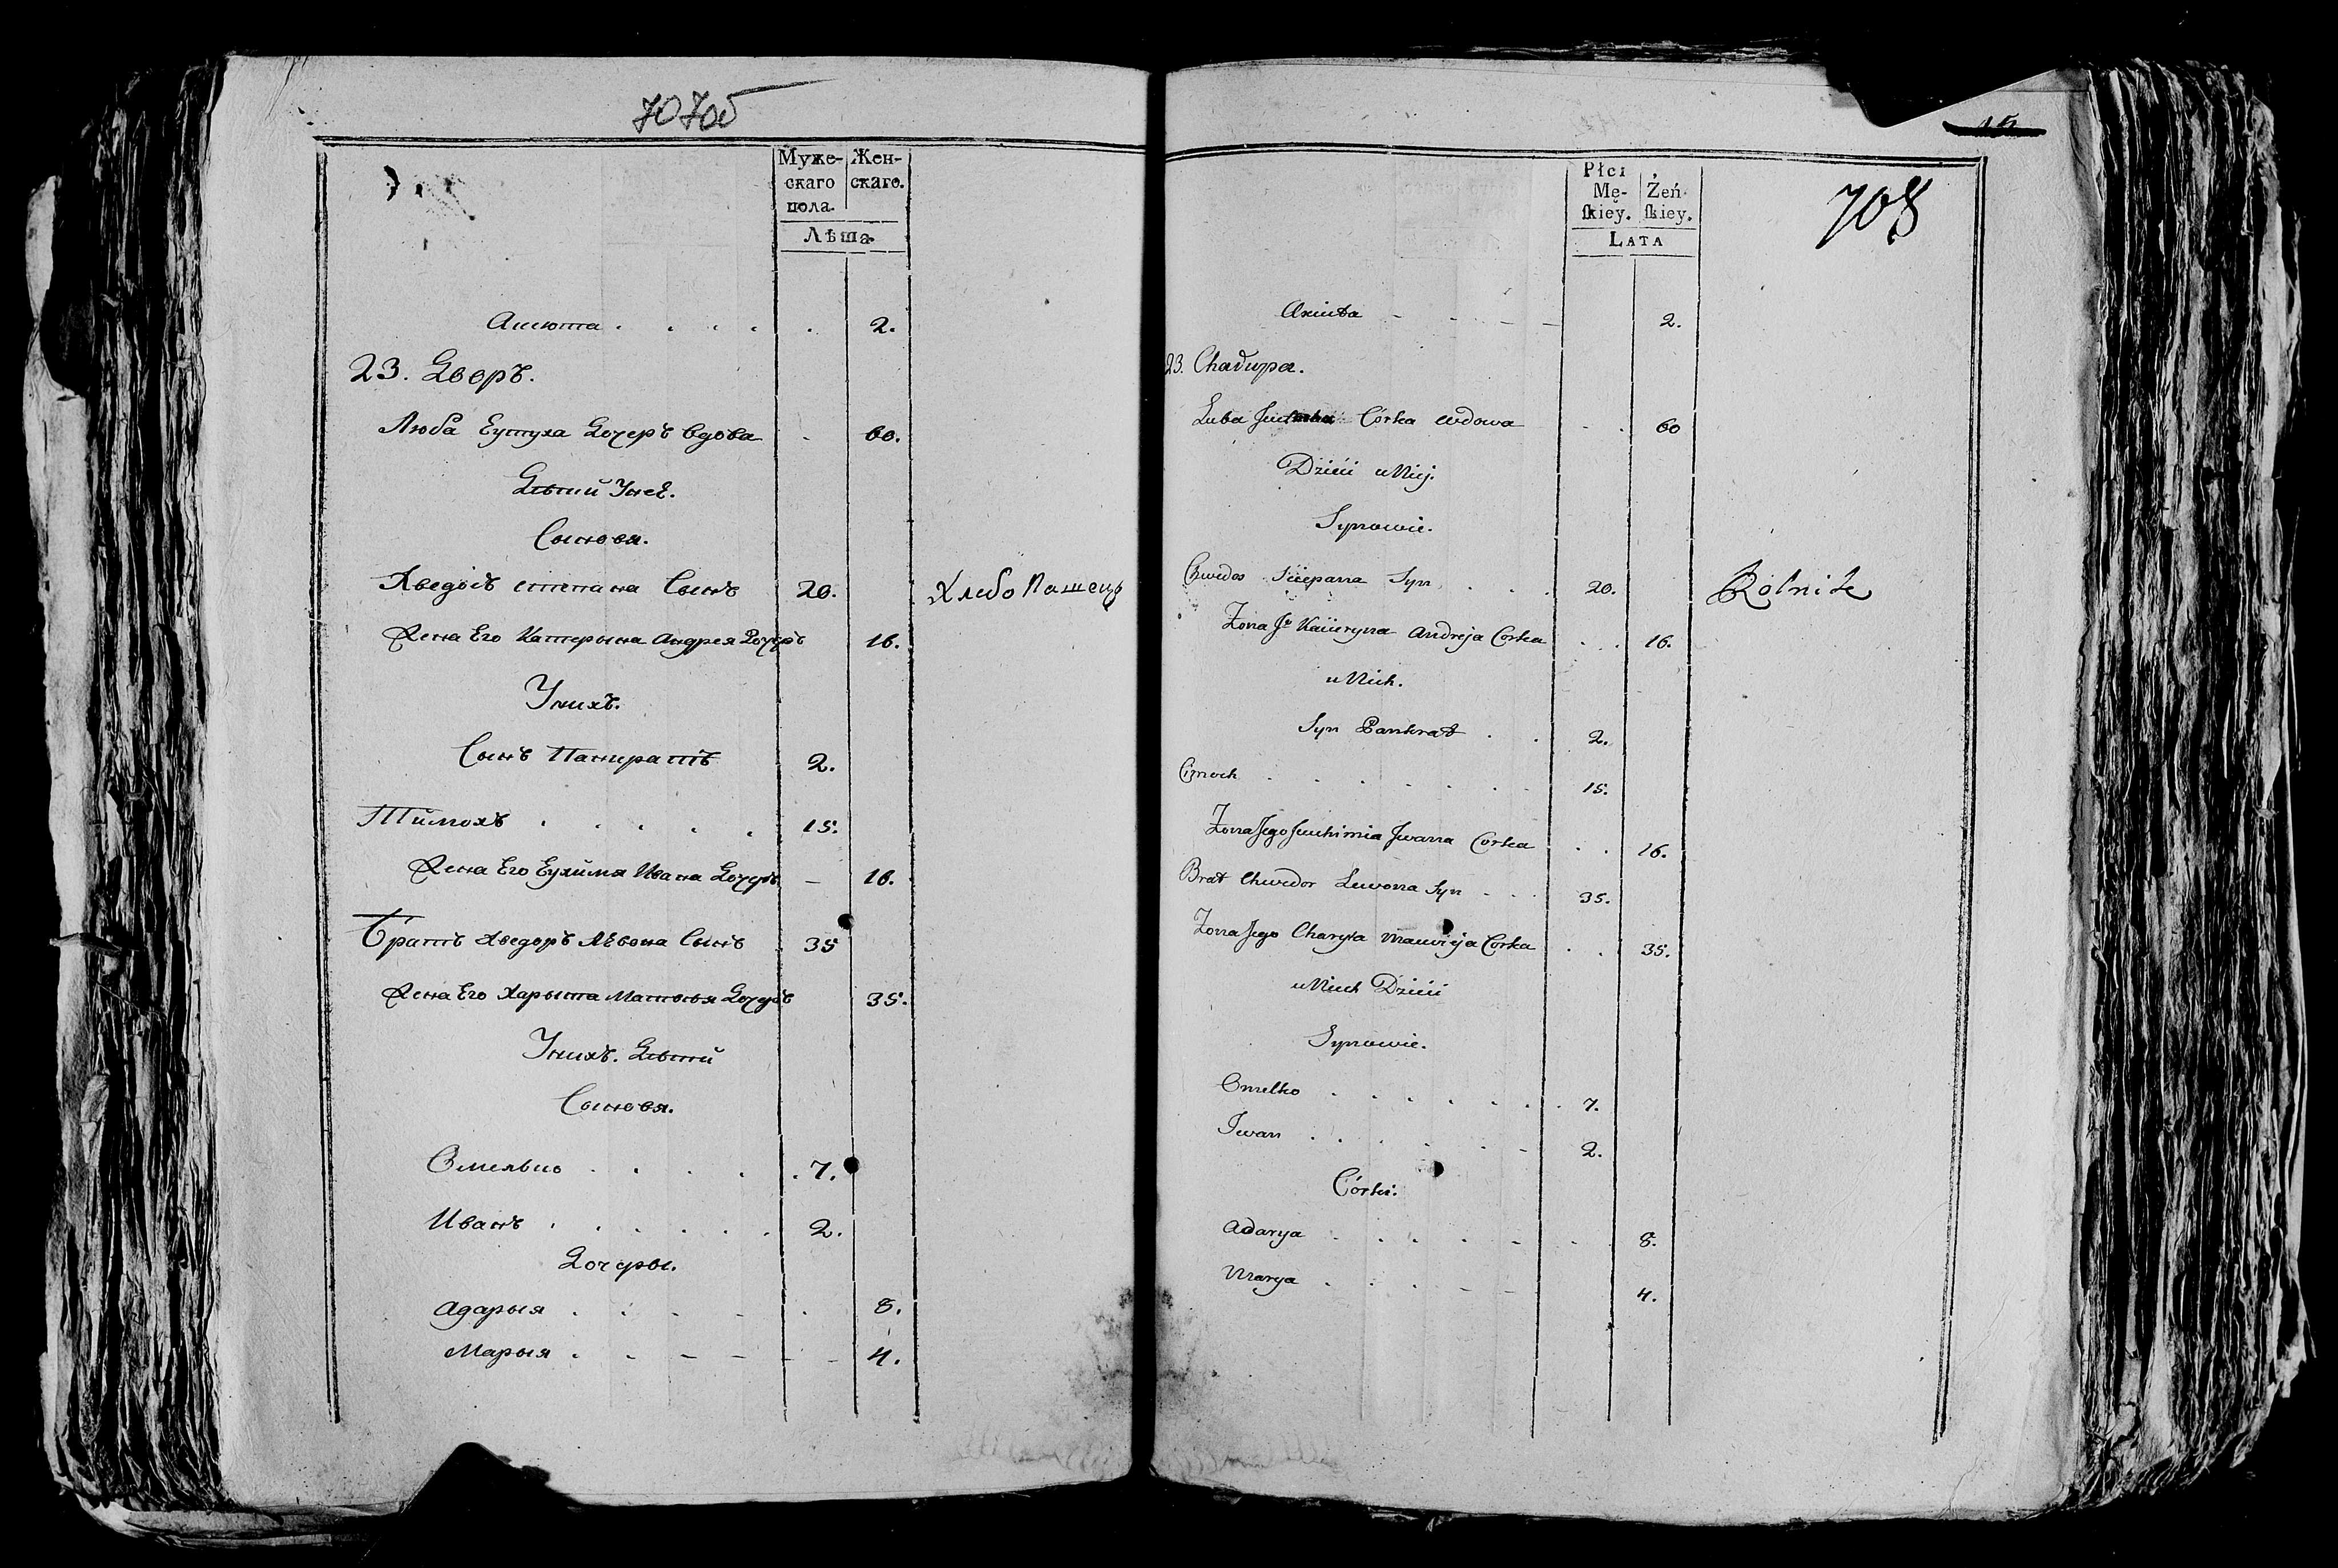 707об
Муже-
скаго
пола.
Жен-
скаго.
Лѣта.
Анюта . . . . . 2.
23. Дворъ.
Люба Еутуха Дочеръ вдова . 60.
Дѣти Унеѣ.
Сыновя.
Хведосъ степана Сынъ 20. Хлебопашецъ
Жена Его Катерына Андрея Дочеръ 16.
Унихъ.
Сынъ Панкратъ 2.
Тимохъ . . . . . 15.
Жена Его Еухимя Ивана Дочеръ – 16.
Братъ Хведоръ Лѣвона Сынъ 35
Жена Его Харыта Матвѣя Дочеръ 35.
Унихъ. Дѣти
Сыновя.
Омелько . . . . 7.
Иванъ . . . . . . 2.
Дочеры.
Адарыя . . . . . 8.
Марыя . . – – – – 4.
708
Płci
Mę-
ſkiey.
Żeń-
ſkiey.
LATA
Aniuta – . – – – 2.
23. Chałupa.
Luba Córka wdowa . . 60
Dzieci u Niej.
Synowie.
Chwedos Sciepana Syn . . . 20. Rolnik
Zona Je Kacieryna Andreja Corka . . 16.
u Nich.
Syn Pankrat . . 2.
Cimoch . . . . . . . 15.
Zona Jego Jeuchimia Jwana Corka . . 16.
Brat Chwedor Lewona Syn . . . 35.
Zona Jego Charyta Maciwieja Corka . . 35.
u Nich Dzieci
Synowie.
Omelko . . . . . . . 7.
Jwan . . . . . – 2.
Córki.
Adarya . . . . – . . 8.
Marya . . . – – 4.